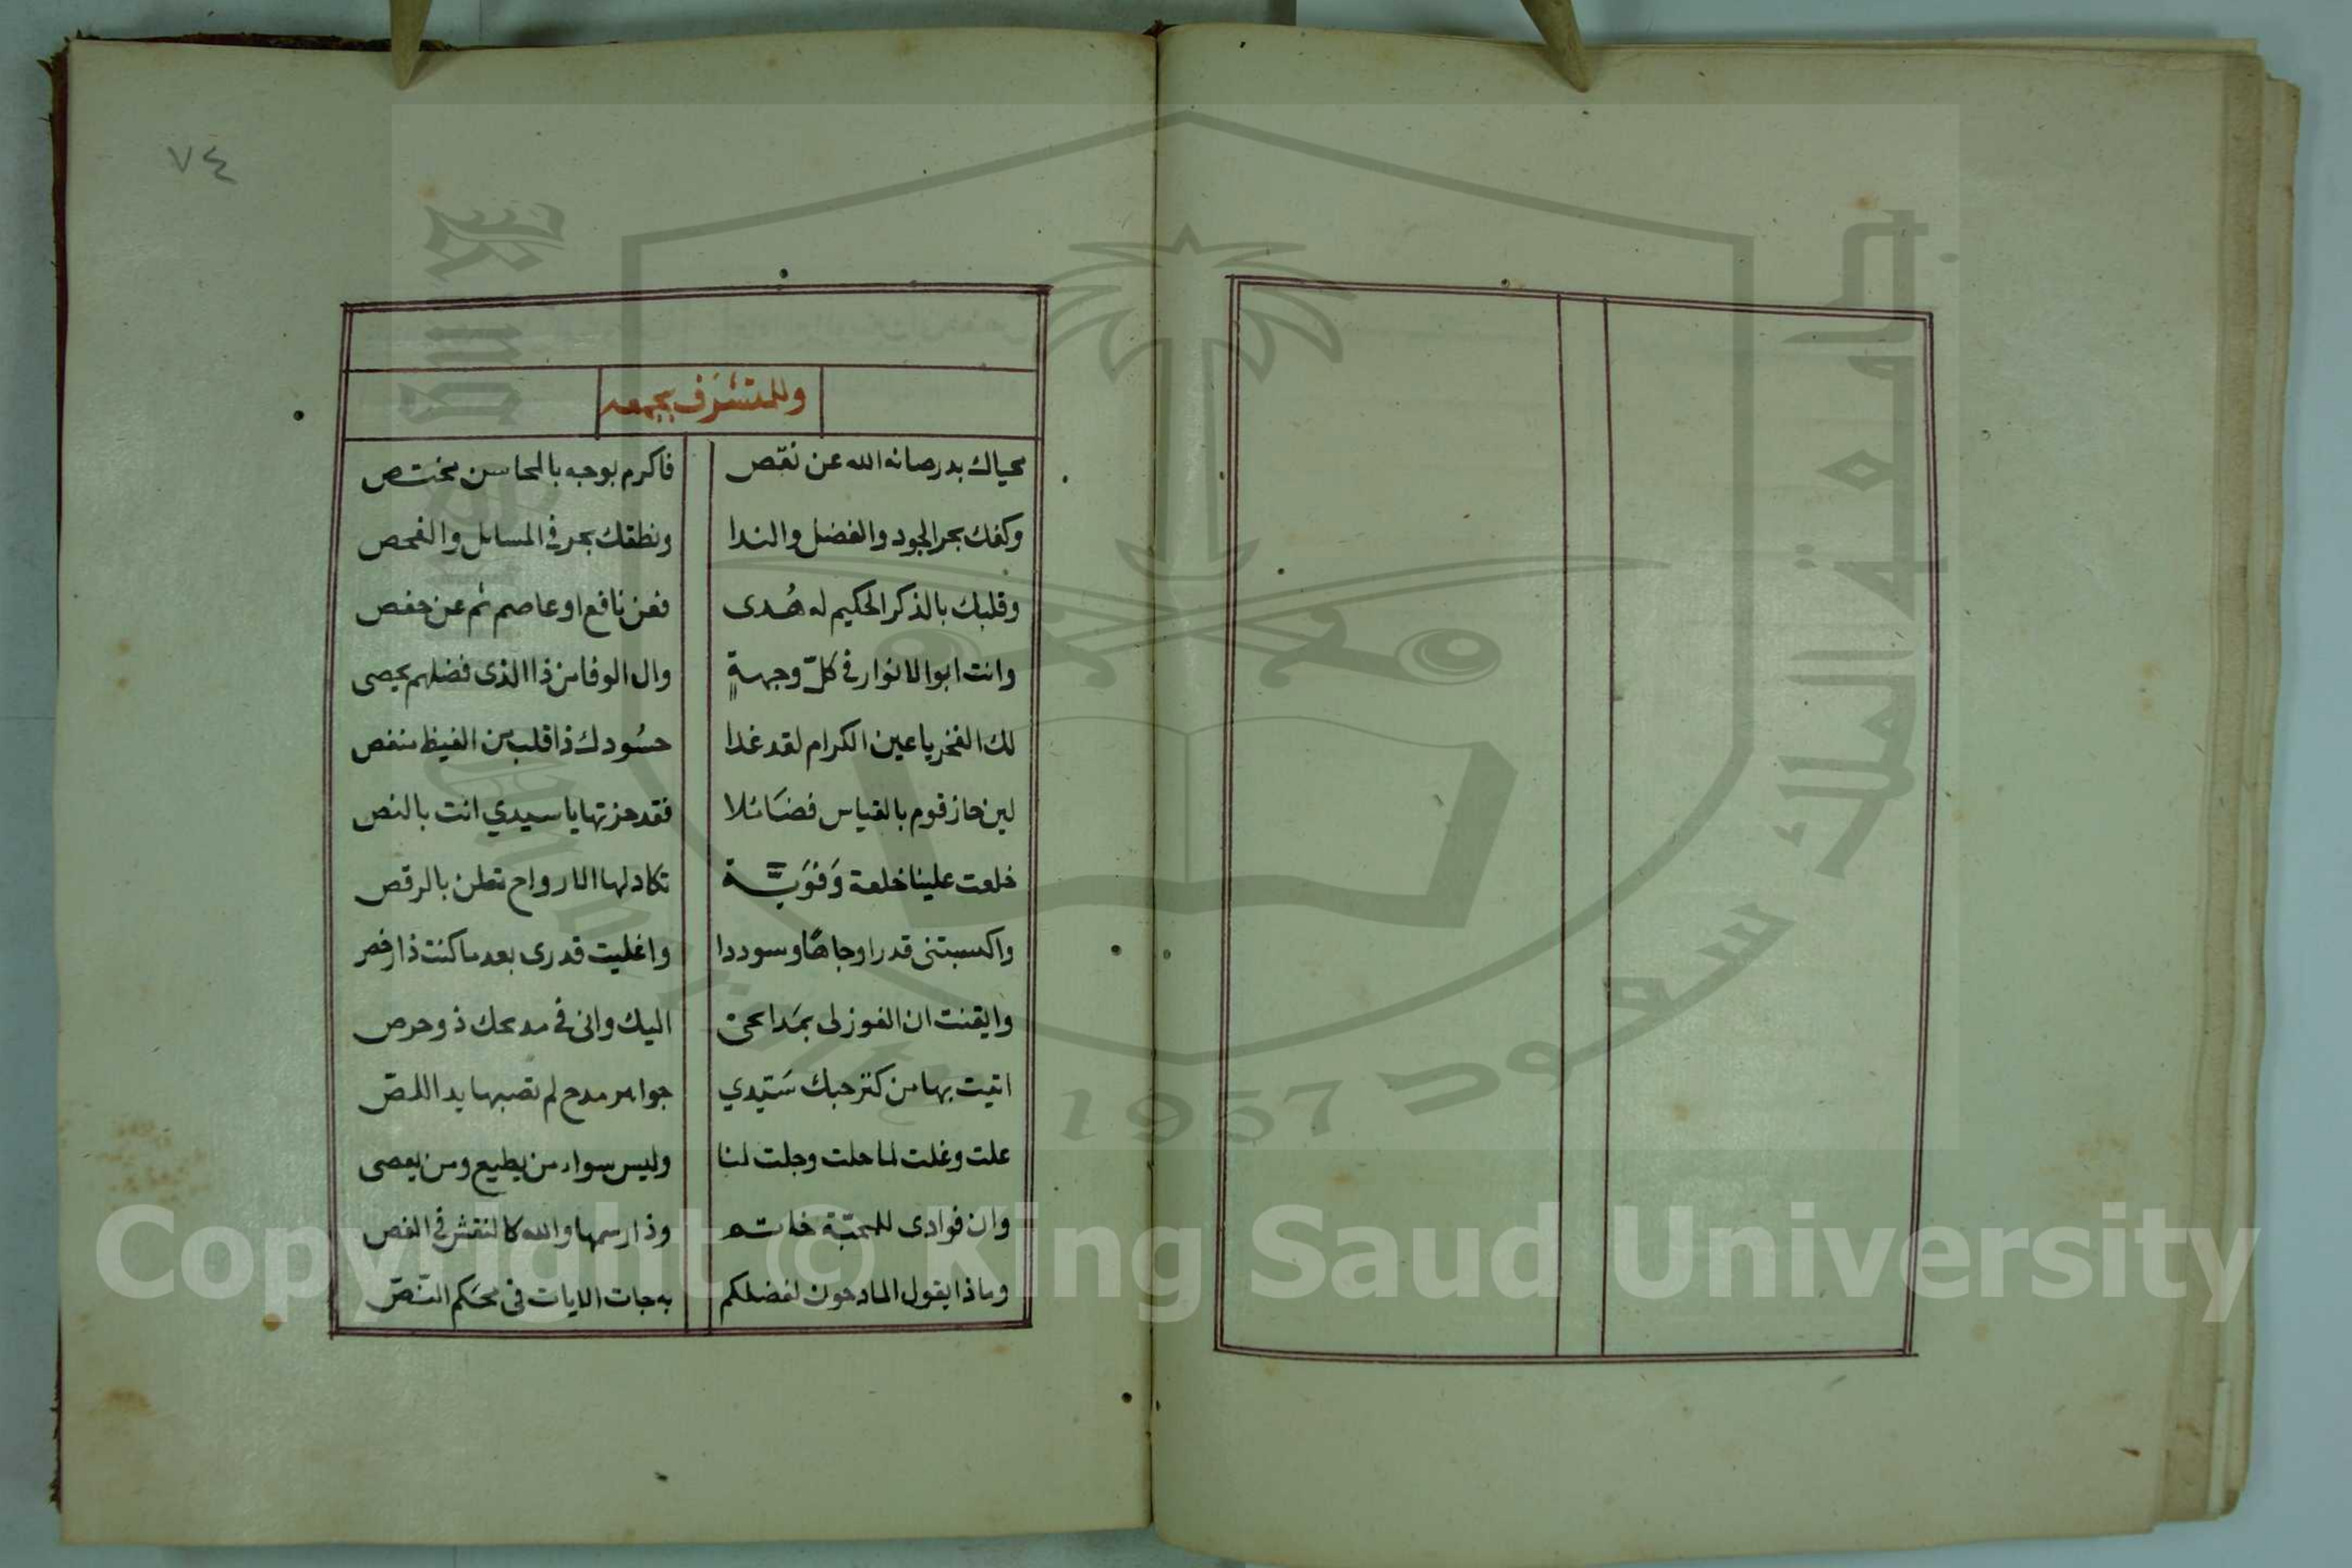 ٧٤
وللمتشرف بجمعه
محياك بدر صانه الله عن نقص فاكرم بوجه بالمحاسن مختص
وكفك بحر الجود والفضل والندا ونطقك بحر في المسايل والفحص
وقلبك بالذكر الحكيم له هُدى فعن نافع او عاصم ثم عن حفص
وانت ابو الانوار في كلّ وجهةٍ وال الوفا من ذا الذى فضلهم يحصى
لك الفخر يا عين الكرام لقد غدا حسُودك ذا قلب من الغيظ منغص
لين حاز قوم بالقياس فضَائلا فقد حزتها يا سيدي انت بالنص
خلعت علينا خلعة وَفَويَّة تكاد لها الارواح تعلن بالرقص
واكسبتنى قدرا وجاهًا وسوددا واغليت قدرى بعد ما كنت ذا رخص
وايقنت ان الفوز لى بمَدائحى اليك وانى فى مديحك ذو حرص
اتيت بها من كنز حبك سَيّدي جواهر مدح لم تصبها يد اللصّ
علت وغلت لما حلت وجلت لنا وليس سواء من يطيع ومن يعصى
وان فوادى للمحبّة خاتم وذا رسمها والله كالنقش فى الفص
وماذا يقول المادحون لفضلكم به جات الايات فى محكم النّصّ
جامعة الملك سعود
King Saud University
1957
Copyright © King Saud University